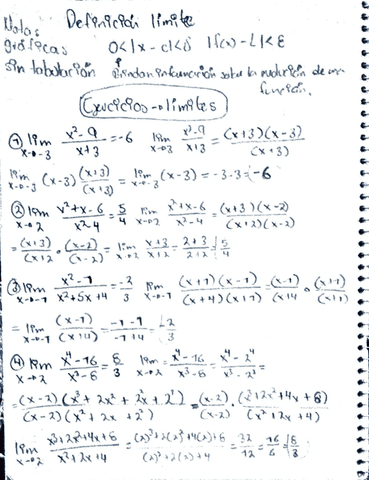 Notas Definición límite
gráficas 0<|x-c|<δ |f(x)-L|<ε
sin tabulación Brindan información sobre la evolución de una
función.
Ejercicios límites
① lim x→-3 x²-9/x+3 = -6 lim x→3 x²-9/x+3 = (x+3)(x-3)/(x+3)
lim x→-3 (x-3) (x+3)/(x+3) = lim x→-3 (x-3) = -3-3 = -6
② lim x→2 x²+x-6/x²-4 = 5/4 lim x→2 x²+x-6/x²-4 = (x+3)(x-2)/(x+2)(x-2)
= (x+3)/(x+2 · (x-2)/(x-2) = lim x→2 x+3/x+2 = 2+3/2+2 = 5/4
③ lim x→-1 x²-1/x²+5x+4 = -2/3 lim x→-1 (x+1)(x-1)/(x+4)(x+1) = (x-1)/(x+4 · (x+1)/(x+1)
= lim x→-1 (x-1)/(x+4) = -1-1/-1+4 = -2/3
④ lim x→2 x⁴-16/x³-8 = 8/3 lim x→2 = x⁴-16/x³-8 = x⁴-2⁴/x³-2³ =
= (x-2)(x³+2x²+2²x+2³)/(x-2)(x²+2x+2²) = (x-2)/(x-2) · (x³+2x²+4x+8)/(x²+2x+4)
lim x→2 x³+2x²+4x+8/x²+2x+4 = (2)³+2(2)²+4(2)+8/(2)²+2(2)+4 = 32/12 = 16/6 = 8/3